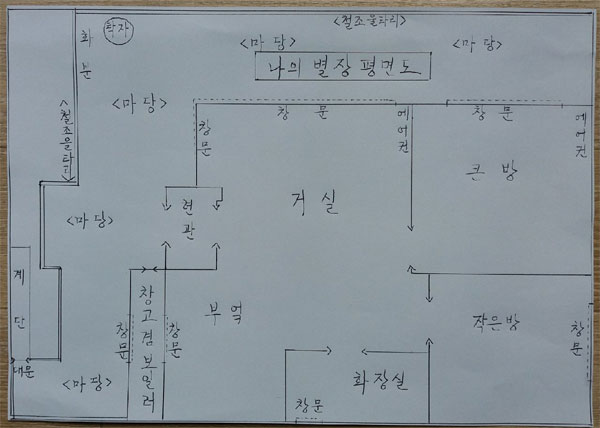 <철조울타리>
탁자
화분
<마당>
<마당>
나의 별장 평면도
<마당>
창문
에어컨
창문
에어컨
창문
<철조울타리
큰방
거실
현관
<마당>
계단
창고겸보일러
부엌
작은방
창문
창문
창문
대문
<마당>
화장실
창문